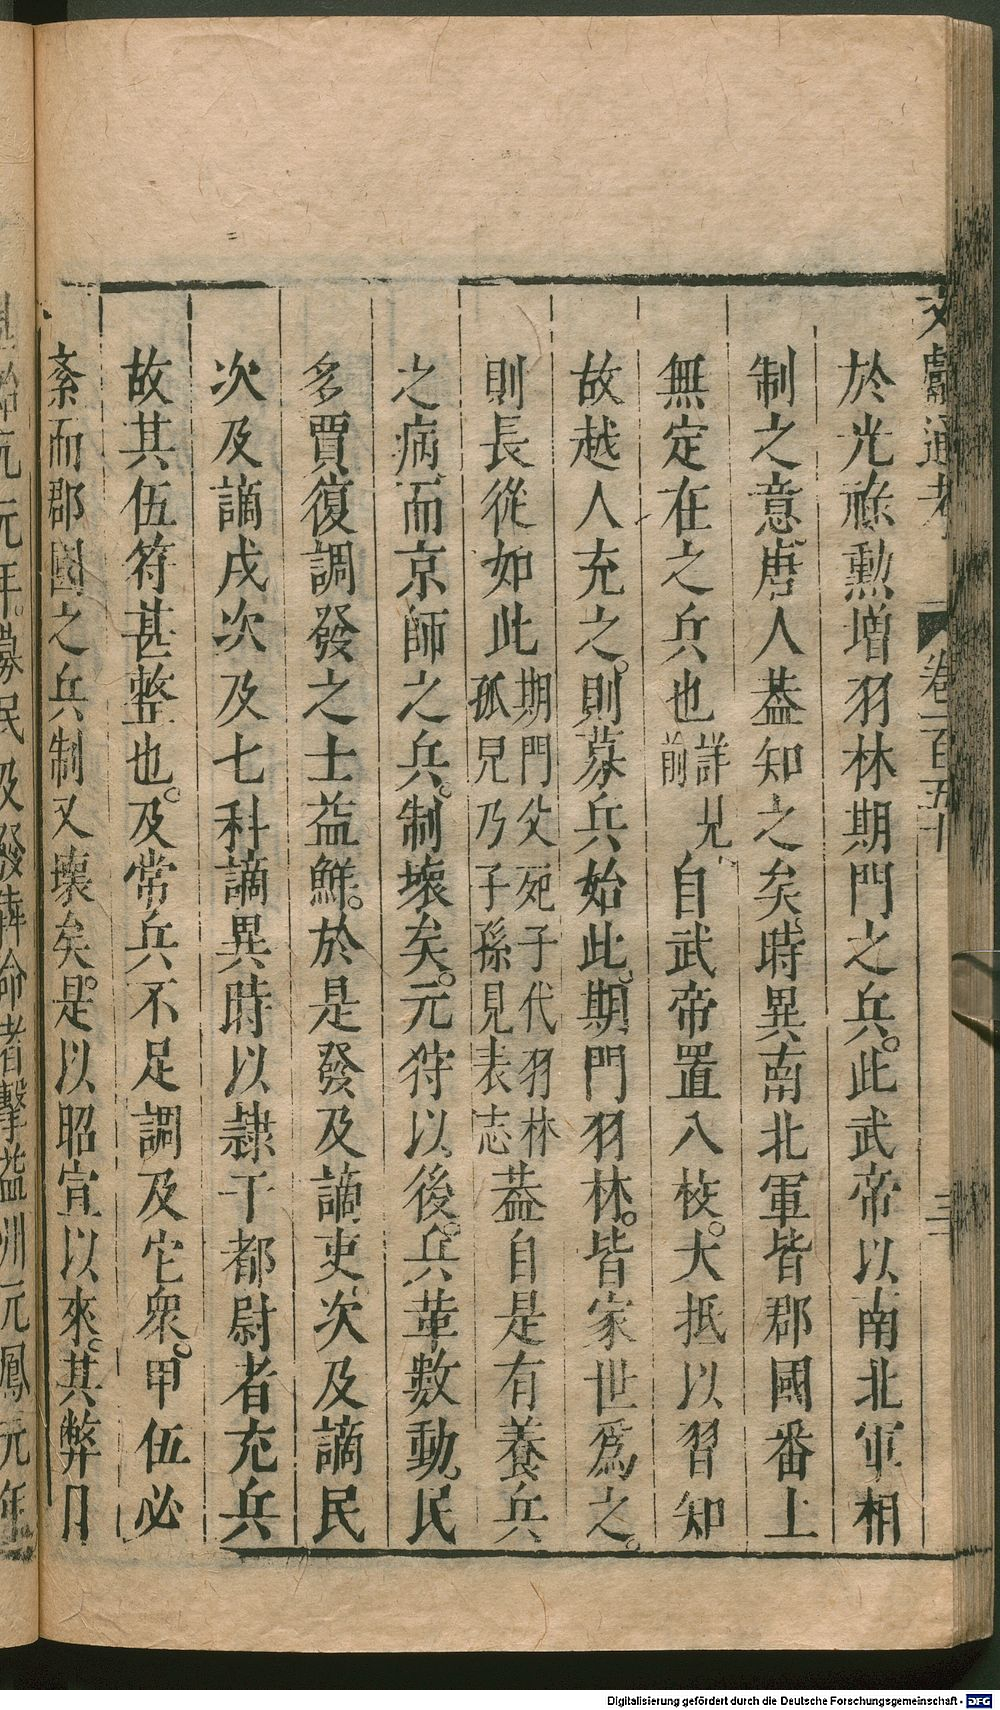 文獻通考 卷一百五十 三
於光祿勲増羽林期門之兵。此武帝以南北軍相
制之意。唐人葢知之矣。時異南北軍皆郡國番上
無定在之兵也詳見前自武帝置八校。大抵以習知
故越人充之。則募兵始此。期門羽林。皆家世爲之。
則長從如此期門父死子代羽林孤兒乃子孫見表志葢自是有養兵
之病而京師之兵。制壊矣。元狩以後。兵革數動。民
多賈復調發之士益鮮。於是發及謫吏。次及謫民
次及謫戍次及七科謫異時以隷于都尉者充兵
故其伍符甚整也。及常兵不足調及它衆。甲伍必
紊而郡國之兵制又壊矣。是以昭宣以來。其弊日
元年。募民及發犇命者擊益州元鳳元年
Digitalisierung gefördert durch die Deutsche Forschungsgemeinschaft - DFG